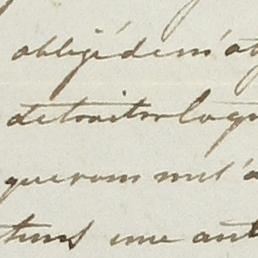 obligé de m'at
de traiter la qu
que vous me l'a
tems une aut